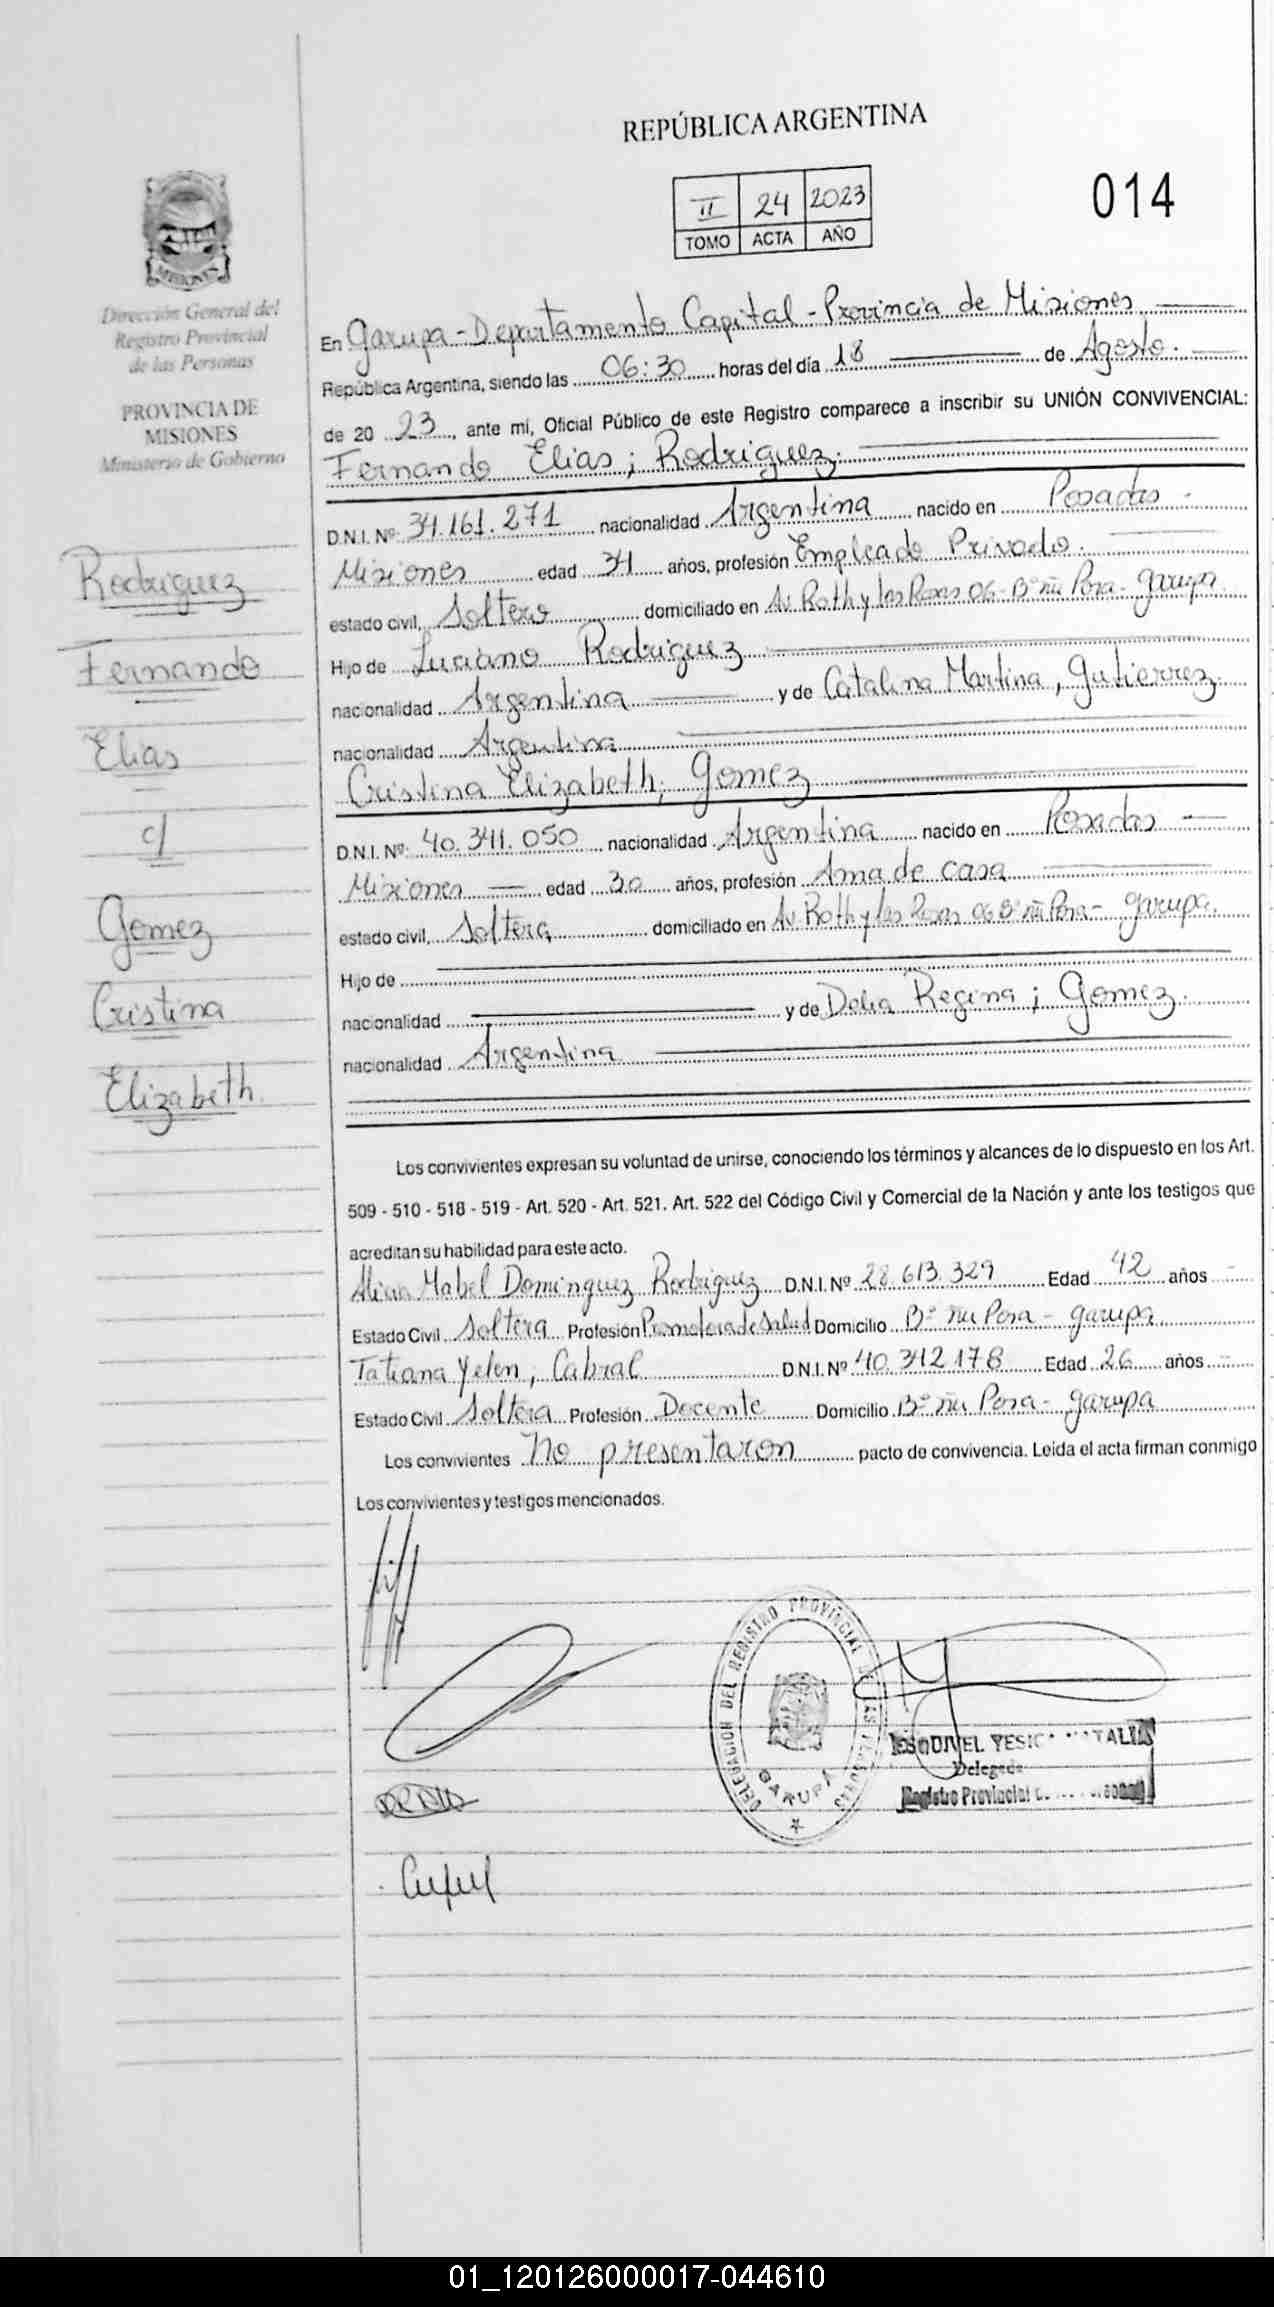 REPÚBLICA ARGENTINA
II 24 2023
TOMO ACTA AÑO
014
MISIONES
Dirección General del
Registro Provincial
de las Personas
PROVINCIA DE
MISIONES
Ministerio de Gobierno
En Garupa - Departamento Capital - Provincia de Misiones
República Argentina, siendo las 06:30 horas del día 18 de Agosto.
de 20 23, ante mí, Oficial Público de este Registro comparece a inscribir su UNIÓN CONVIVENCIAL:
Fernando Elias; Rodriguez.
D.N.I. Nº: 34.161.271 nacionalidad Argentina nacido en Posadas -
Misiones edad 34 años, profesión Empleado Privado.
estado civil, Soltero domiciliado en Av Roth y las Rosas 06 - Bº ñu Pora - Garupa.
Hijo de Luciano Rodriguez
nacionalidad Argentina y de Catalina Martina, Gutierrez
nacionalidad Argentina
Cristina Elizabeth; Gomez
D.N.I. Nº: 40.341.050 nacionalidad Argentina nacido en Posadas
Misiones edad 30 años, profesión Ama de casa
estado civil, Soltera domiciliado en Av Roth y las Rosas 06 Bº ñu Pora - Garupa.
Hijo de
nacionalidad y de Delia Regina; Gomez.
nacionalidad Argentina
Rodriguez
Fernando
Elias
c/
Gomez
Cristina
Elizabeth
Los convivientes expresan su voluntad de unirse, conociendo los términos y alcances de lo dispuesto en los Art.
509 - 510 - 518 - 519 - Art. 520 - Art. 521. Art. 522 del Código Civil y Comercial de la Nación y ante los testigos que
acreditan su habilidad para este acto.
Mabel Dominguez Rodriguez D.N.I. Nº 28.613.329 Edad 42 años
Estado Civil Soltera Profesión Promotora de Salud Domicilio Bº ñu Pora - Garupa
Tatiana Yelen, Cabral D.N.I. Nº 40.342.178 Edad 26 años
Estado Civil Soltera Profesión Docente Domicilio Bº ñu Pora - Garupa
Los convivientes No presentaron pacto de convivencia. Leída el acta firman conmigo
Los convivientes y testigos mencionados.
DELEGACION DEL REGISTRO PROVINCIAL DE LAS PERSONAS
GARUPA
ESQUIVEL
Delegada
Registro Provincial
01_120126000017-044610